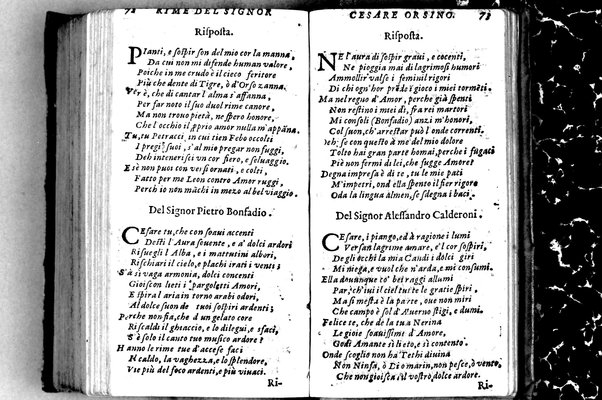 72 RIME DEL SIGNOR
Risposta.
Pianti, e sospir son del mio cor la manna,
Da cui non mi defende human valore,
Poiche in me crudo è il cieco feritore
Più che dente di Tigre, ò d'Orso zanna.
Ver è, che di cantar l'alma s'affanna,
Per far noto il suo duol rime canore,
Ma non trouo pietà, ne spero honore,
Che l'occhio il proprio amor nulla m'appāna.
Tu, tu Petracci, in cui tien Febo occolti
I pregi suoi, s'al mio pregar non fuggi,
Deh intenerisci vn cor fiero, e seluaggio.
E iè non puoi con versi ornati, e colti,
Fatto per me Leon contro Amor ruggi,
Perch io non māchi in mezo al bel viaggio.
Del Signor Pietro Bonfadio.
CEsare tu, che con soaui accenti
Desti l'Aura souente, e a' dolci ardori
Risuegli l'Alba, e i mattutini albori,
Rischiari il cielo, e plachi irati i venti;
S'à sì vaga armonia, dolci concenti
Gioiscon lieti i pargoletti Amori,
E spiral aria in torno arabi odori,
Al dolce suon de tuoi sospiri ardenti;
Perche non fia, che d'un gelato core
Riscaldi il ghiaccio, e lo dilegui, e sfaci,
S'è solo il canto tuo musico ardore?
Hanno le rime tue d'accese faci
Il caldo, la vaghezza, e lo splendore,
Vie più del foco ardenti, e più viuaci.
Ri-
CESARE ORSINO. 73
Risposta.
NE l'aura di sospir graui, e cocenti,
Ne pioggia mai di lagrimosi humori
Ammollir valse i feminil rigori
Di chi ogn'hor prēde i gioco i miei tormēti.
Ma nel regno d'Amor, perche già spenti
Non restino i miei dì, fra rei martori
Mi consoli (Bonfadio) anzi m'honori,
Col suon, ch'arrestar può l'onde correnti.
Deh, se con questo à me del mio dolore
Tolto hai gran parte homai, perche i fugaci
Piè non fermi di lei, che fugge Amore?
Degna impresa è di te, tu le mie pati
M'impetri, ond ella spento il fier rigore
Oda la lingua almen, se sdegna i baci.
Del Signor Alessandro Calderoni.
CEsare, i piango, ed à ragione i lumi
Versan lagrime amare, e'l cor sospiri,
De gli occhi la mia Candi i dolci giri
Mi niega, e vuol che n'arda, e mi consumi.
Ella dounque to' bei raggi allumi
Par, ch'ui il ciel tutte le gratie spiri,
Ma si mesta è la parte, oue non miri
Che campo è sol d'Auerno stigi, e dumi.
Felice te, che de la tua Nerina
Le gioie soauissime d'Amore,
Godi Amante si lieto, e si contento.
Onde scoglio non ha Tethi diuina
Non Ninfa, ò Dio marin, non pesce, ò vento,
Che non gioisca il vostro dolce ardore.
Ri-